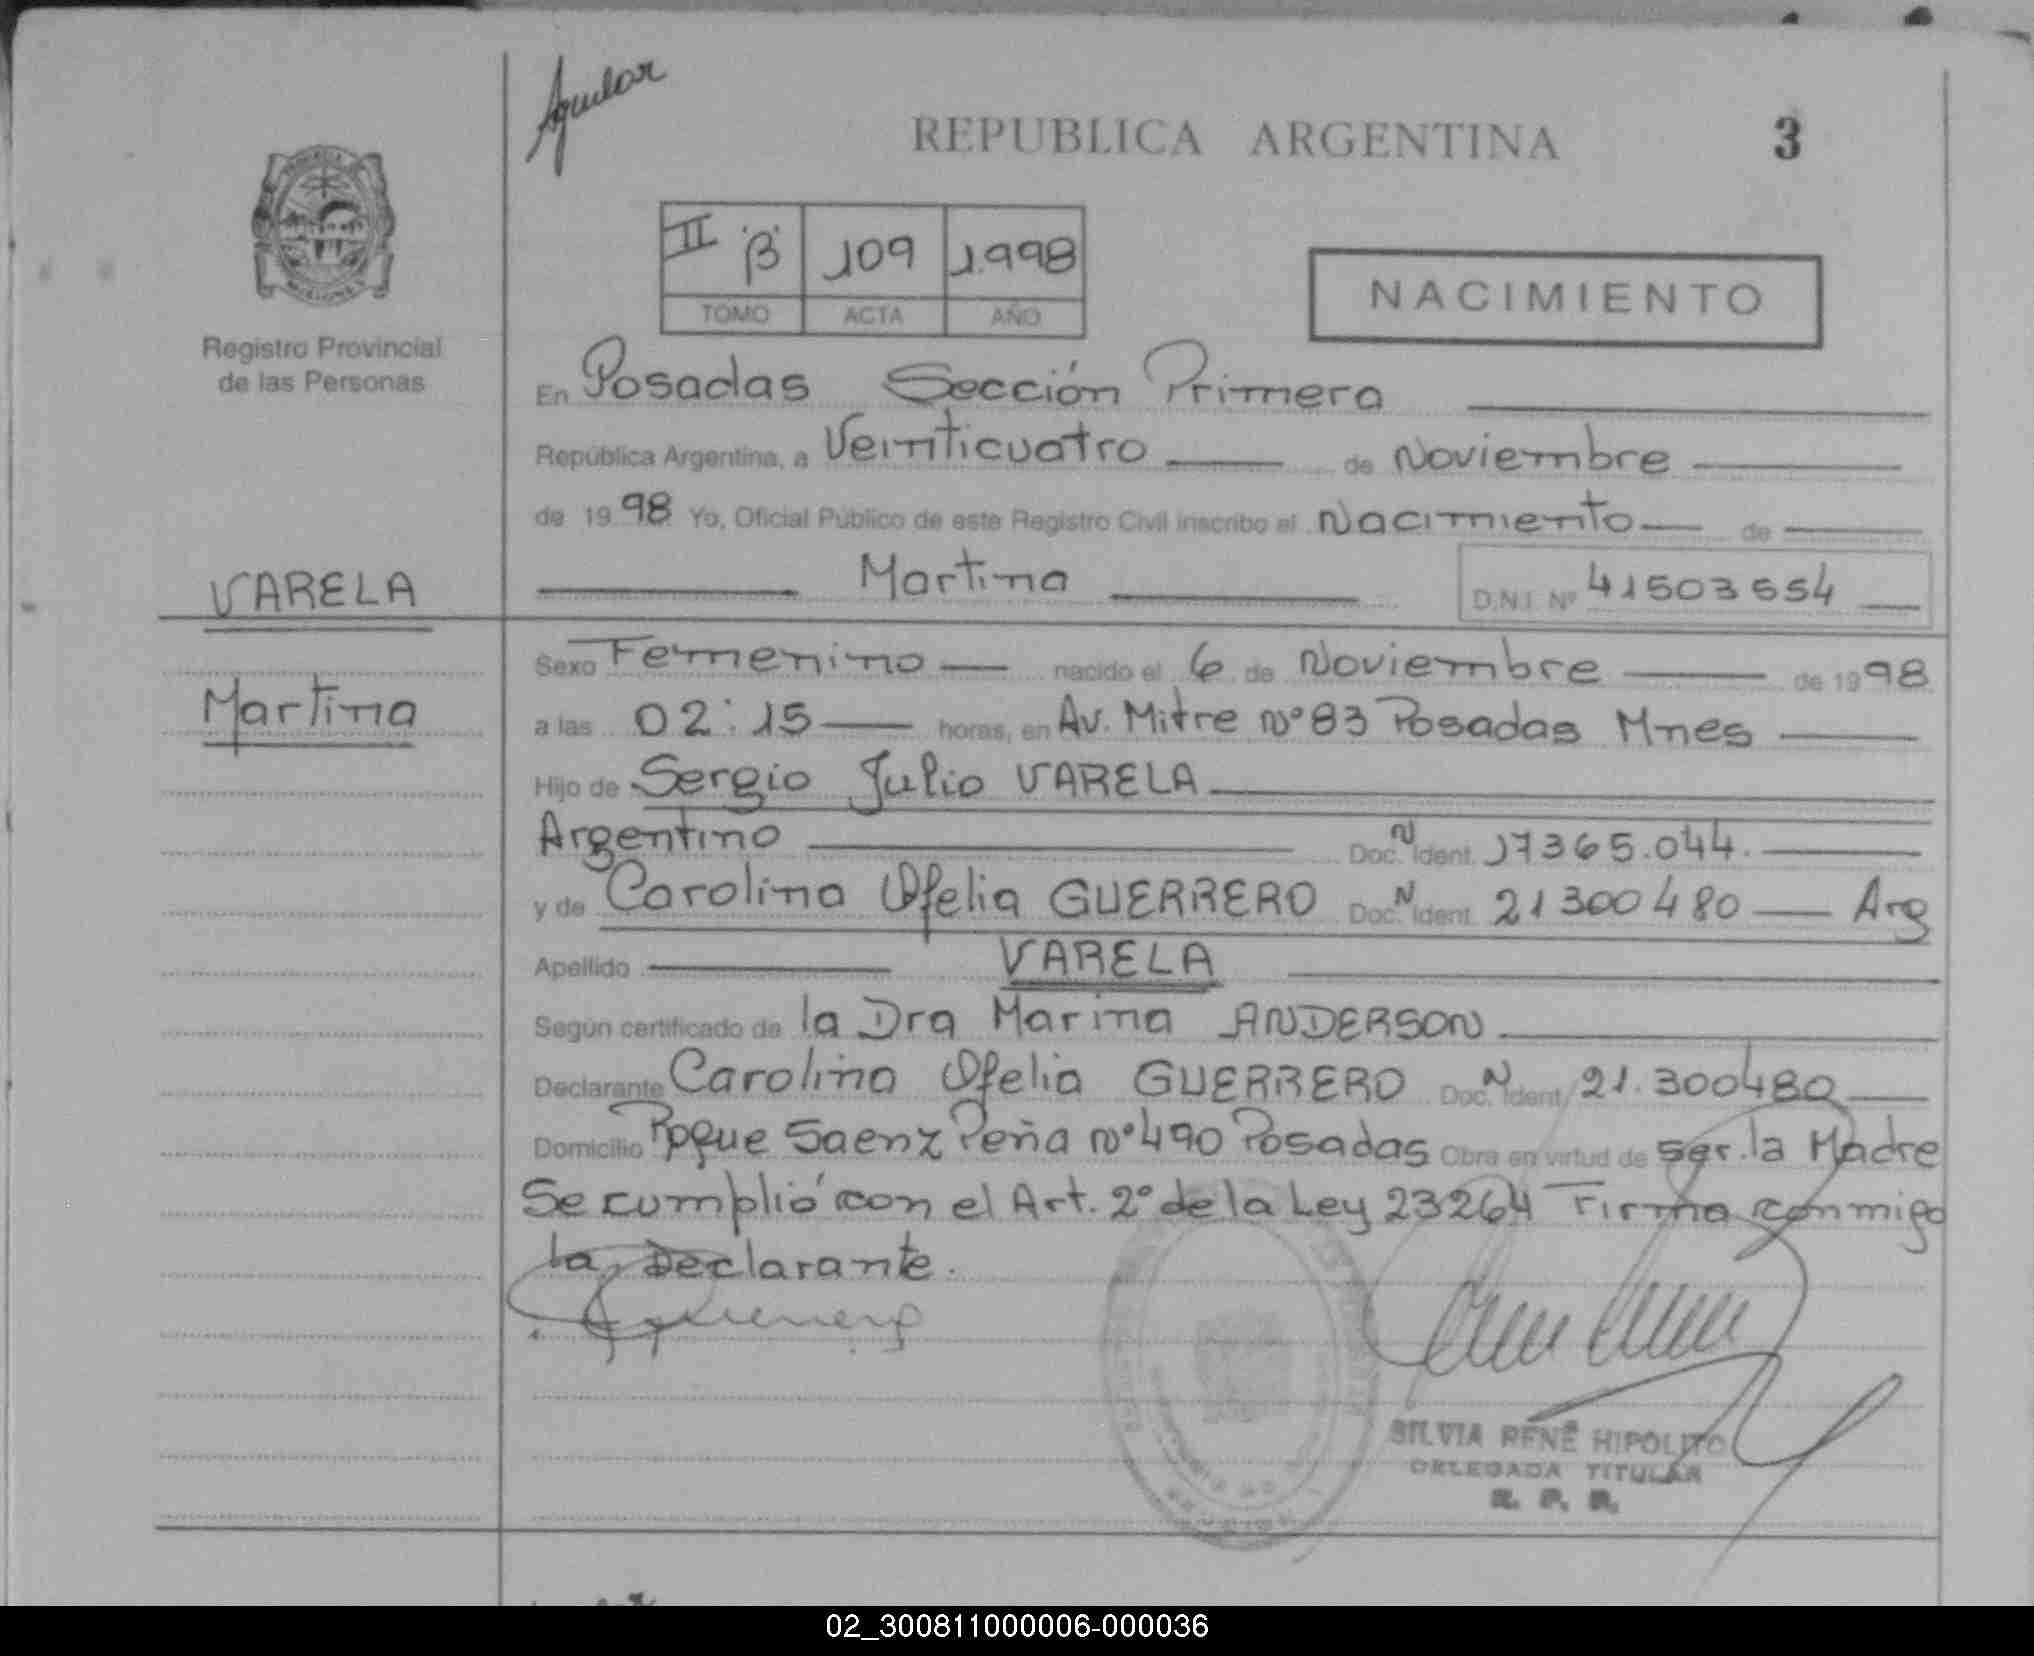 Aguilar
REPUBLICA ARGENTINA 3
II "B" 109 1.998
TOMO ACTA AÑO
NACIMIENTO
Registro Provincial
de las Personas
En Posadas Sección Primera
República Argentina, a Veinticuatro de Noviembre
de 1998 Yo, Oficial Público de este Registro Civil inscribo el Nacimiento de
VARELA
Martina D.N.I. Nº 41503554
Sexo Femenino nacido el 6 de Noviembre de 1998
Martina
a las 02:15 horas, en Av. Mitre nº 83 Posadas Mnes
Hijo de Sergio Julio VARELA
Argentino Doc. N Ident. 17365.044.
y de Carolina Ofelia GUERRERO Doc. N Ident. 21300480 Arg
Apellido VARELA
Según certificado de la Dra Marina ANDERSON
Declarante Carolina Ofelia GUERRERO Doc. N Ident. 21.300480
Domicilio Roque Saenz Peña nº 490 Posadas Obra en virtud de ser la Madre
Se cumplió con el Art. 2º de la Ley 23264 Firma conmigo
la Declarante.
SILVIA RENÉ HIPOLITO
DELEGADA TITULAR
R. P. P.
02_300811000006-000036